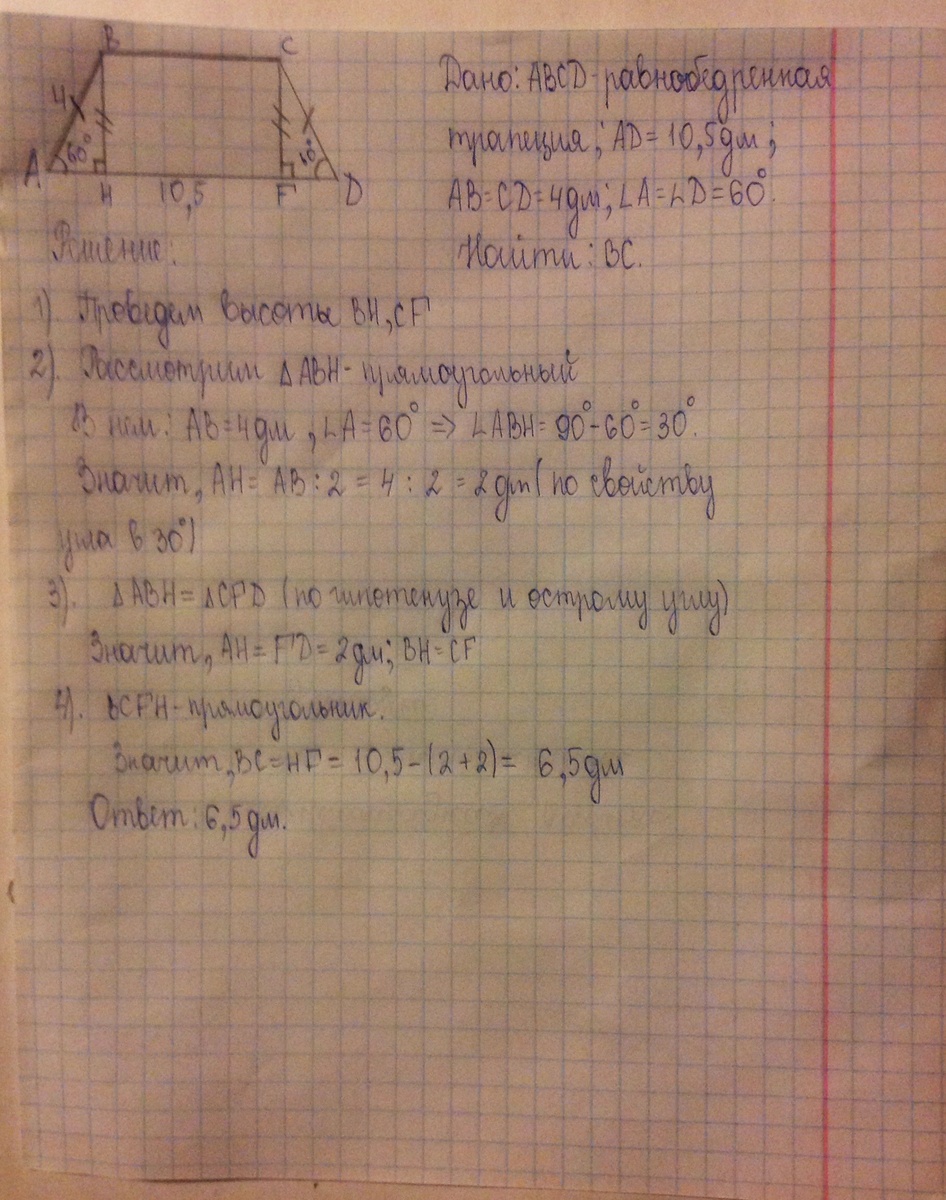 B C
4
60° 60°
A H 10,5 F D
Дано: ABCD - равнобедренная
трапеция; AD = 10,5дм;
AB=CD=4дм; ∠A=∠D=60°.
Найти: BC.
Решение:
1) Проведем высоты BH, CF
2). Рассмотрим ΔABH - прямоугольный
В нем: AB=4дм, ∠A=60° => ∠ABH= 90°-60°=30°.
Значит, AH= AB:2 = 4 : 2 = 2дм (по свойству
угла в 30°)
3). ΔABH = ΔCFD (по гипотенузе и острому углу)
Значит, AH = FD = 2дм; BH = CF
4). BCFH - прямоугольник.
Значит, BC=HF = 10,5-(2+2)= 6,5дм
Ответ: 6,5дм.